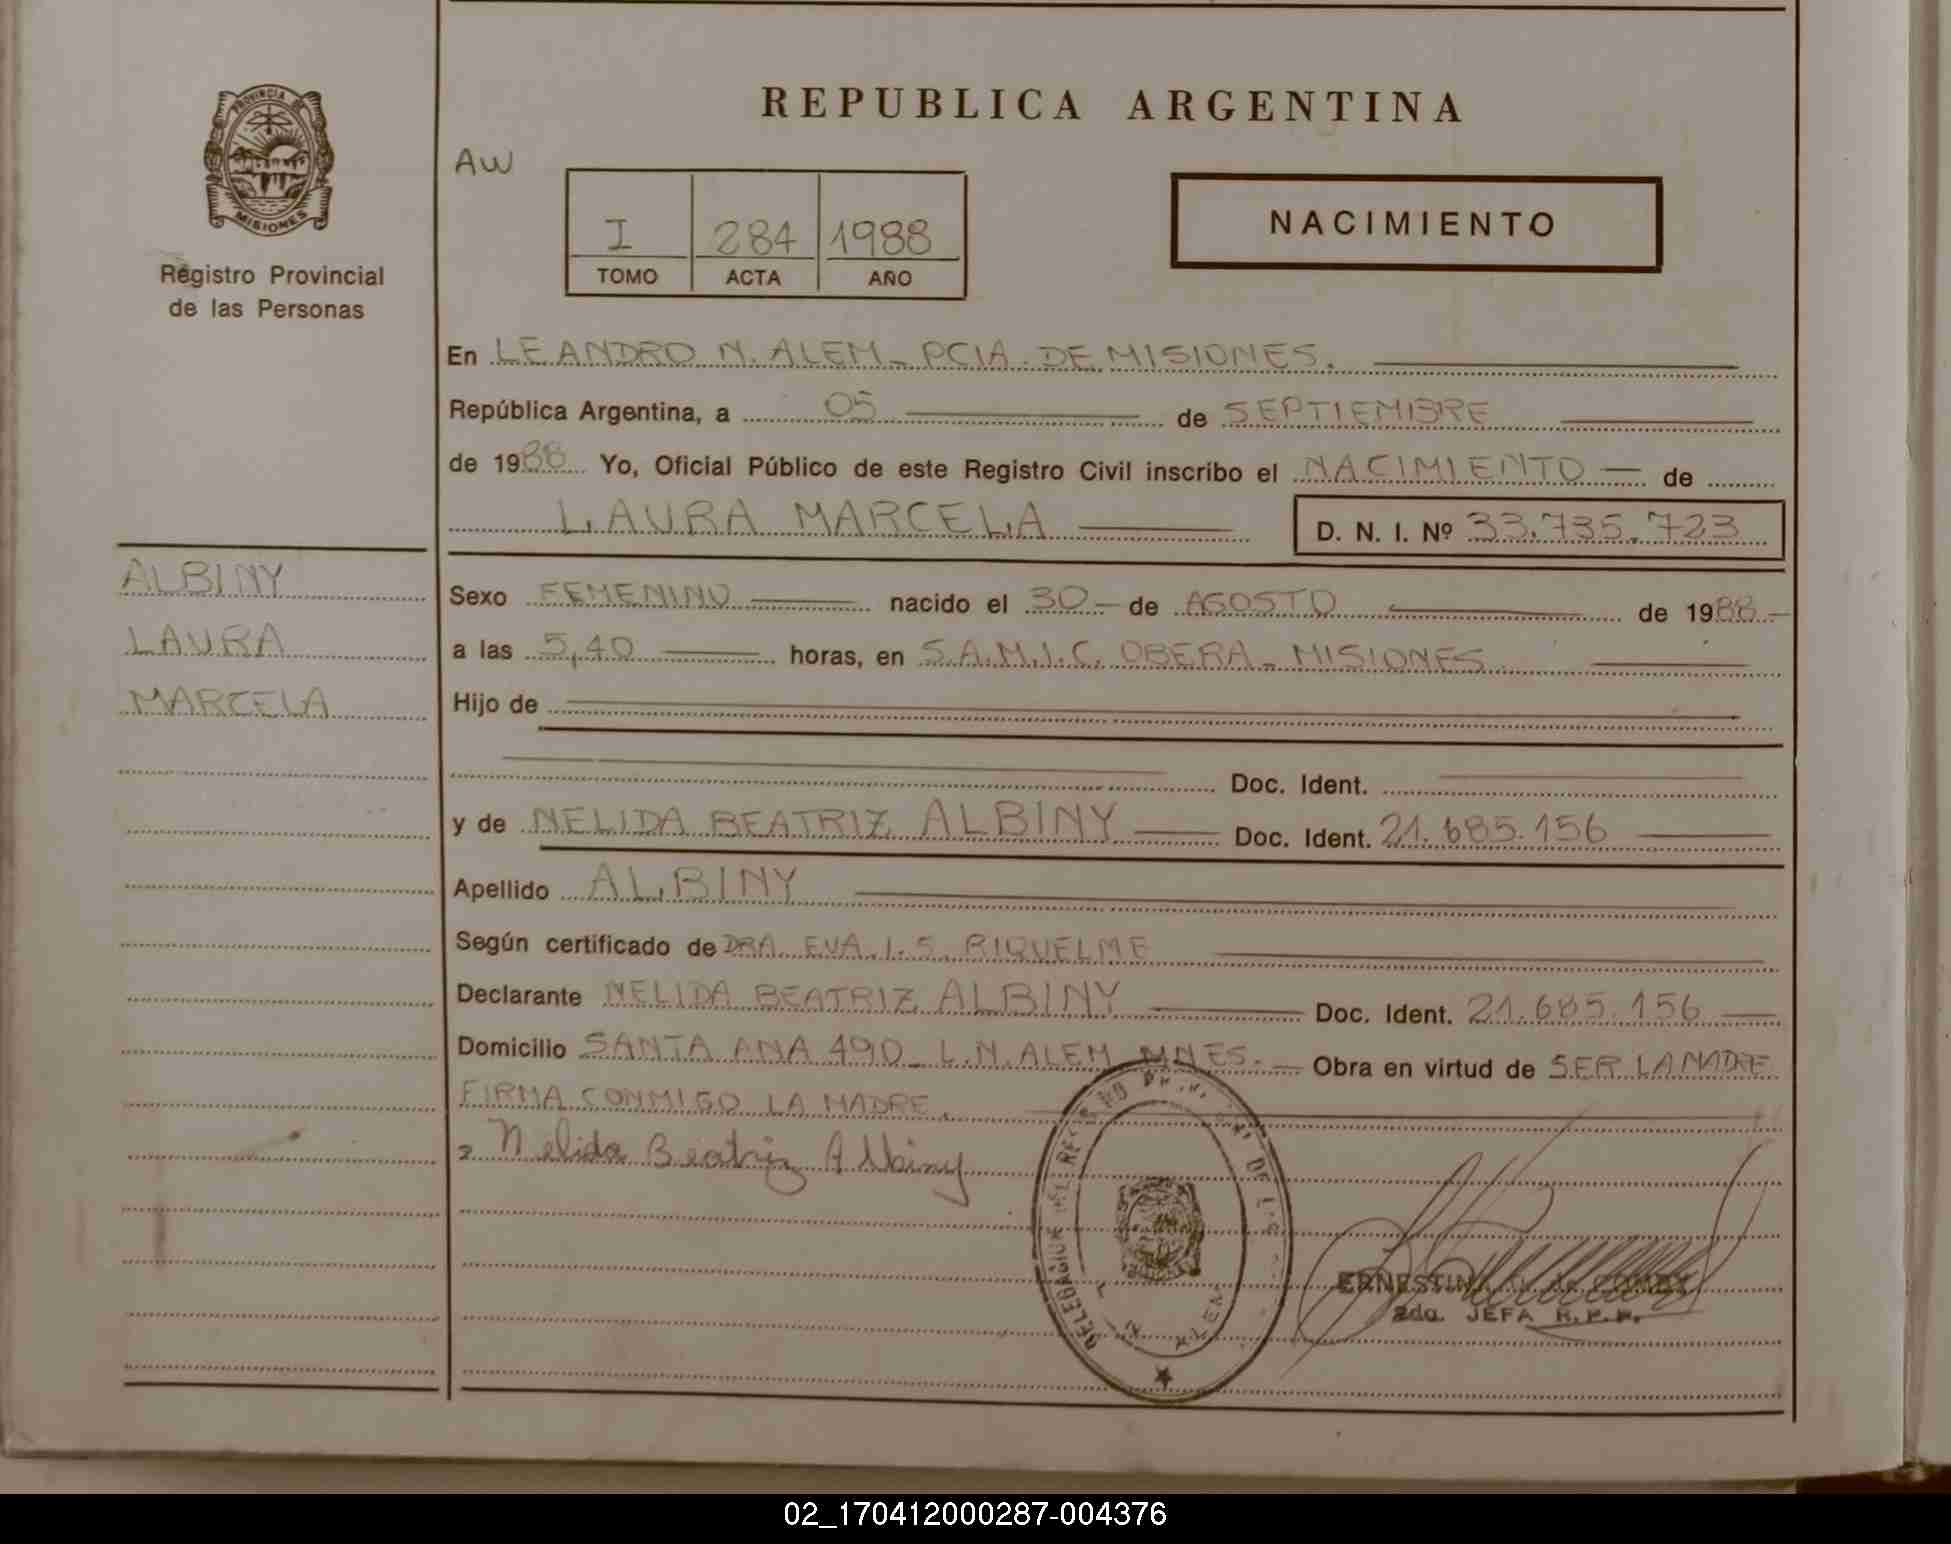 PROVINCIA DE
MISIONES
Registro Provincial
de las Personas
ALBINY
LAURA
MARCELA
REPUBLICA ARGENTINA
AW
I 284 1988
TOMO ACTA AÑO
NACIMIENTO
En LEANDRO N. ALEM - PCIA. DE MISIONES.
República Argentina, a 05 de SEPTIEMBRE
de 1988 Yo, Oficial Público de este Registro Civil inscribo el NACIMIENTO de
LAURA MARCELA D. N. I. Nº 33.735.723
Sexo FEMENINO nacido el 30 de AGOSTO de 1988
a las 5,40 horas, en S.A.M.I.C. OBERA - MISIONES
Hijo de
Doc. Ident.
y de NELIDA BEATRIZ ALBINY Doc. Ident. 21.685.156
Apellido ALBINY
Según certificado de DRA. EVA. I. S. RIQUELME
Declarante NELIDA BEATRIZ ALBINY Doc. Ident. 21.685.156
Domicilio SANTA ANA 490 - L.N. ALEM MNES. Obra en virtud de SER LA MADRE
FIRMA CONMIGO LA MADRE.
Nelida Beatriz Albiny
ERNESTINA de
2da. JEFA R.P.P.
02_170412000287-004376